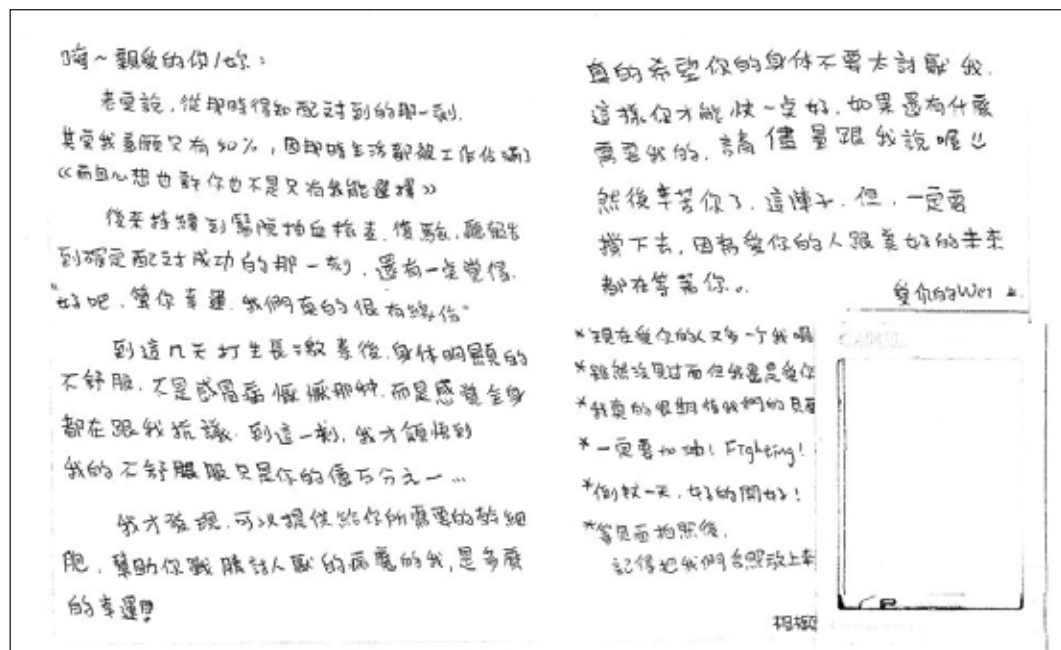 嗨~親愛的你/妳：
老實說，從那時得知配對到的那一刻，
其實我意願只有50%，因那時生活都被工作佔滿了
《而且心想也許你也不是只有我能選擇》
後來持續到醫院抽血檢查、復驗、聽報告
到確定配對成功的那一刻，還有一点覺得，
"好吧，算你幸運，我們真的很有緣份"
到這几天打生長激素後，身体明顯的
不舒服，不是感冒病懨懨那种，而是感覺全身
都在跟我抗議，到這一刻，我才領悟到
我的不舒服只是你的億万分之一…
我才發現，可以提供給你所需要的幹細
胞，幫助你戰勝討人厭的病魔的我，是多麼
的幸運!!!
真的希望你的身体不要太討厭我，
這樣你才能快一点好，如果還有什麼
需要我的，請儘量跟我說喔!!
然後辛苦你了，這陣子，但，一定要
撐下去，因為愛你的人跟美好的未來
都在等著你。
愛你的Wei
*現在愛你的人又多一个我喔
*雖然沒見过面但我還是愛你
*我真的很期待我們的見面
*一定要加油! Fighting!
*倒秋一天，好的開始!
*等見面拍照後，
記得把我們合照放上來